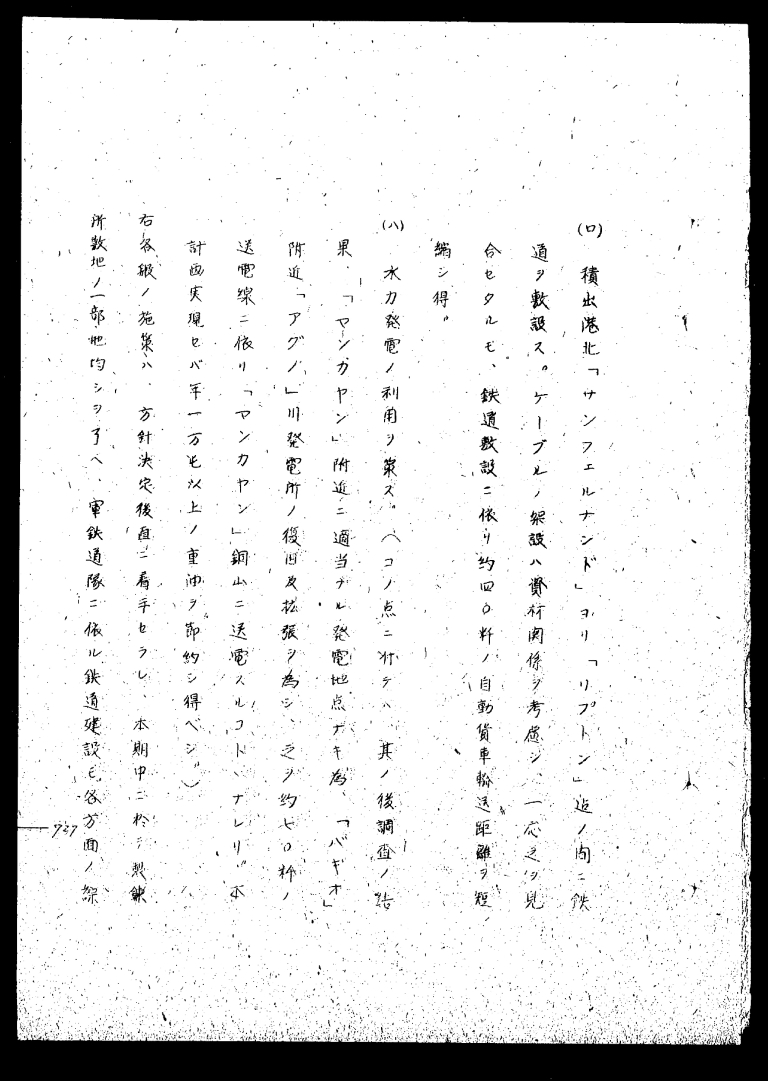 (ロ) 積出港北「サンフェルナンド」ヨリ「リプトン」迄ノ間ニ鉄
道ヲ敷設ス。ケーブルノ架設ハ資材関係ヲ考慮シ、一応之ヲ見
合セタルモ、鉄道敷設ニ依リ約四〇粁ノ自動貨車輸送距離ヲ短
縮シ得。
(ハ) 水力発電ノ利用ヲ策ス。(コノ点ニ付テハ、其ノ後調査ノ結
果、「マンカヤン」附近ニ適当ナル発電地点ナキ為、「バギオ」
附近「アグノ」川発電所ノ復旧及拡張ヲ為シ、之ヲ約七〇粁ノ
送電線ニ依リ「マンカヤン」銅山ニ送電スルコトヽナレリ。本
計画実現セバ年一万屯以上ノ重油ヲ節約シ得ベシ。)
右各般ノ施策ハ、方針決定後直ニ着手セラレ、本期中ニ於テ製錬
所敷地ノ一部地均シヲ了ヘ、軍鉄道隊ニ依ル鉄道建設モ各方面ノ
737